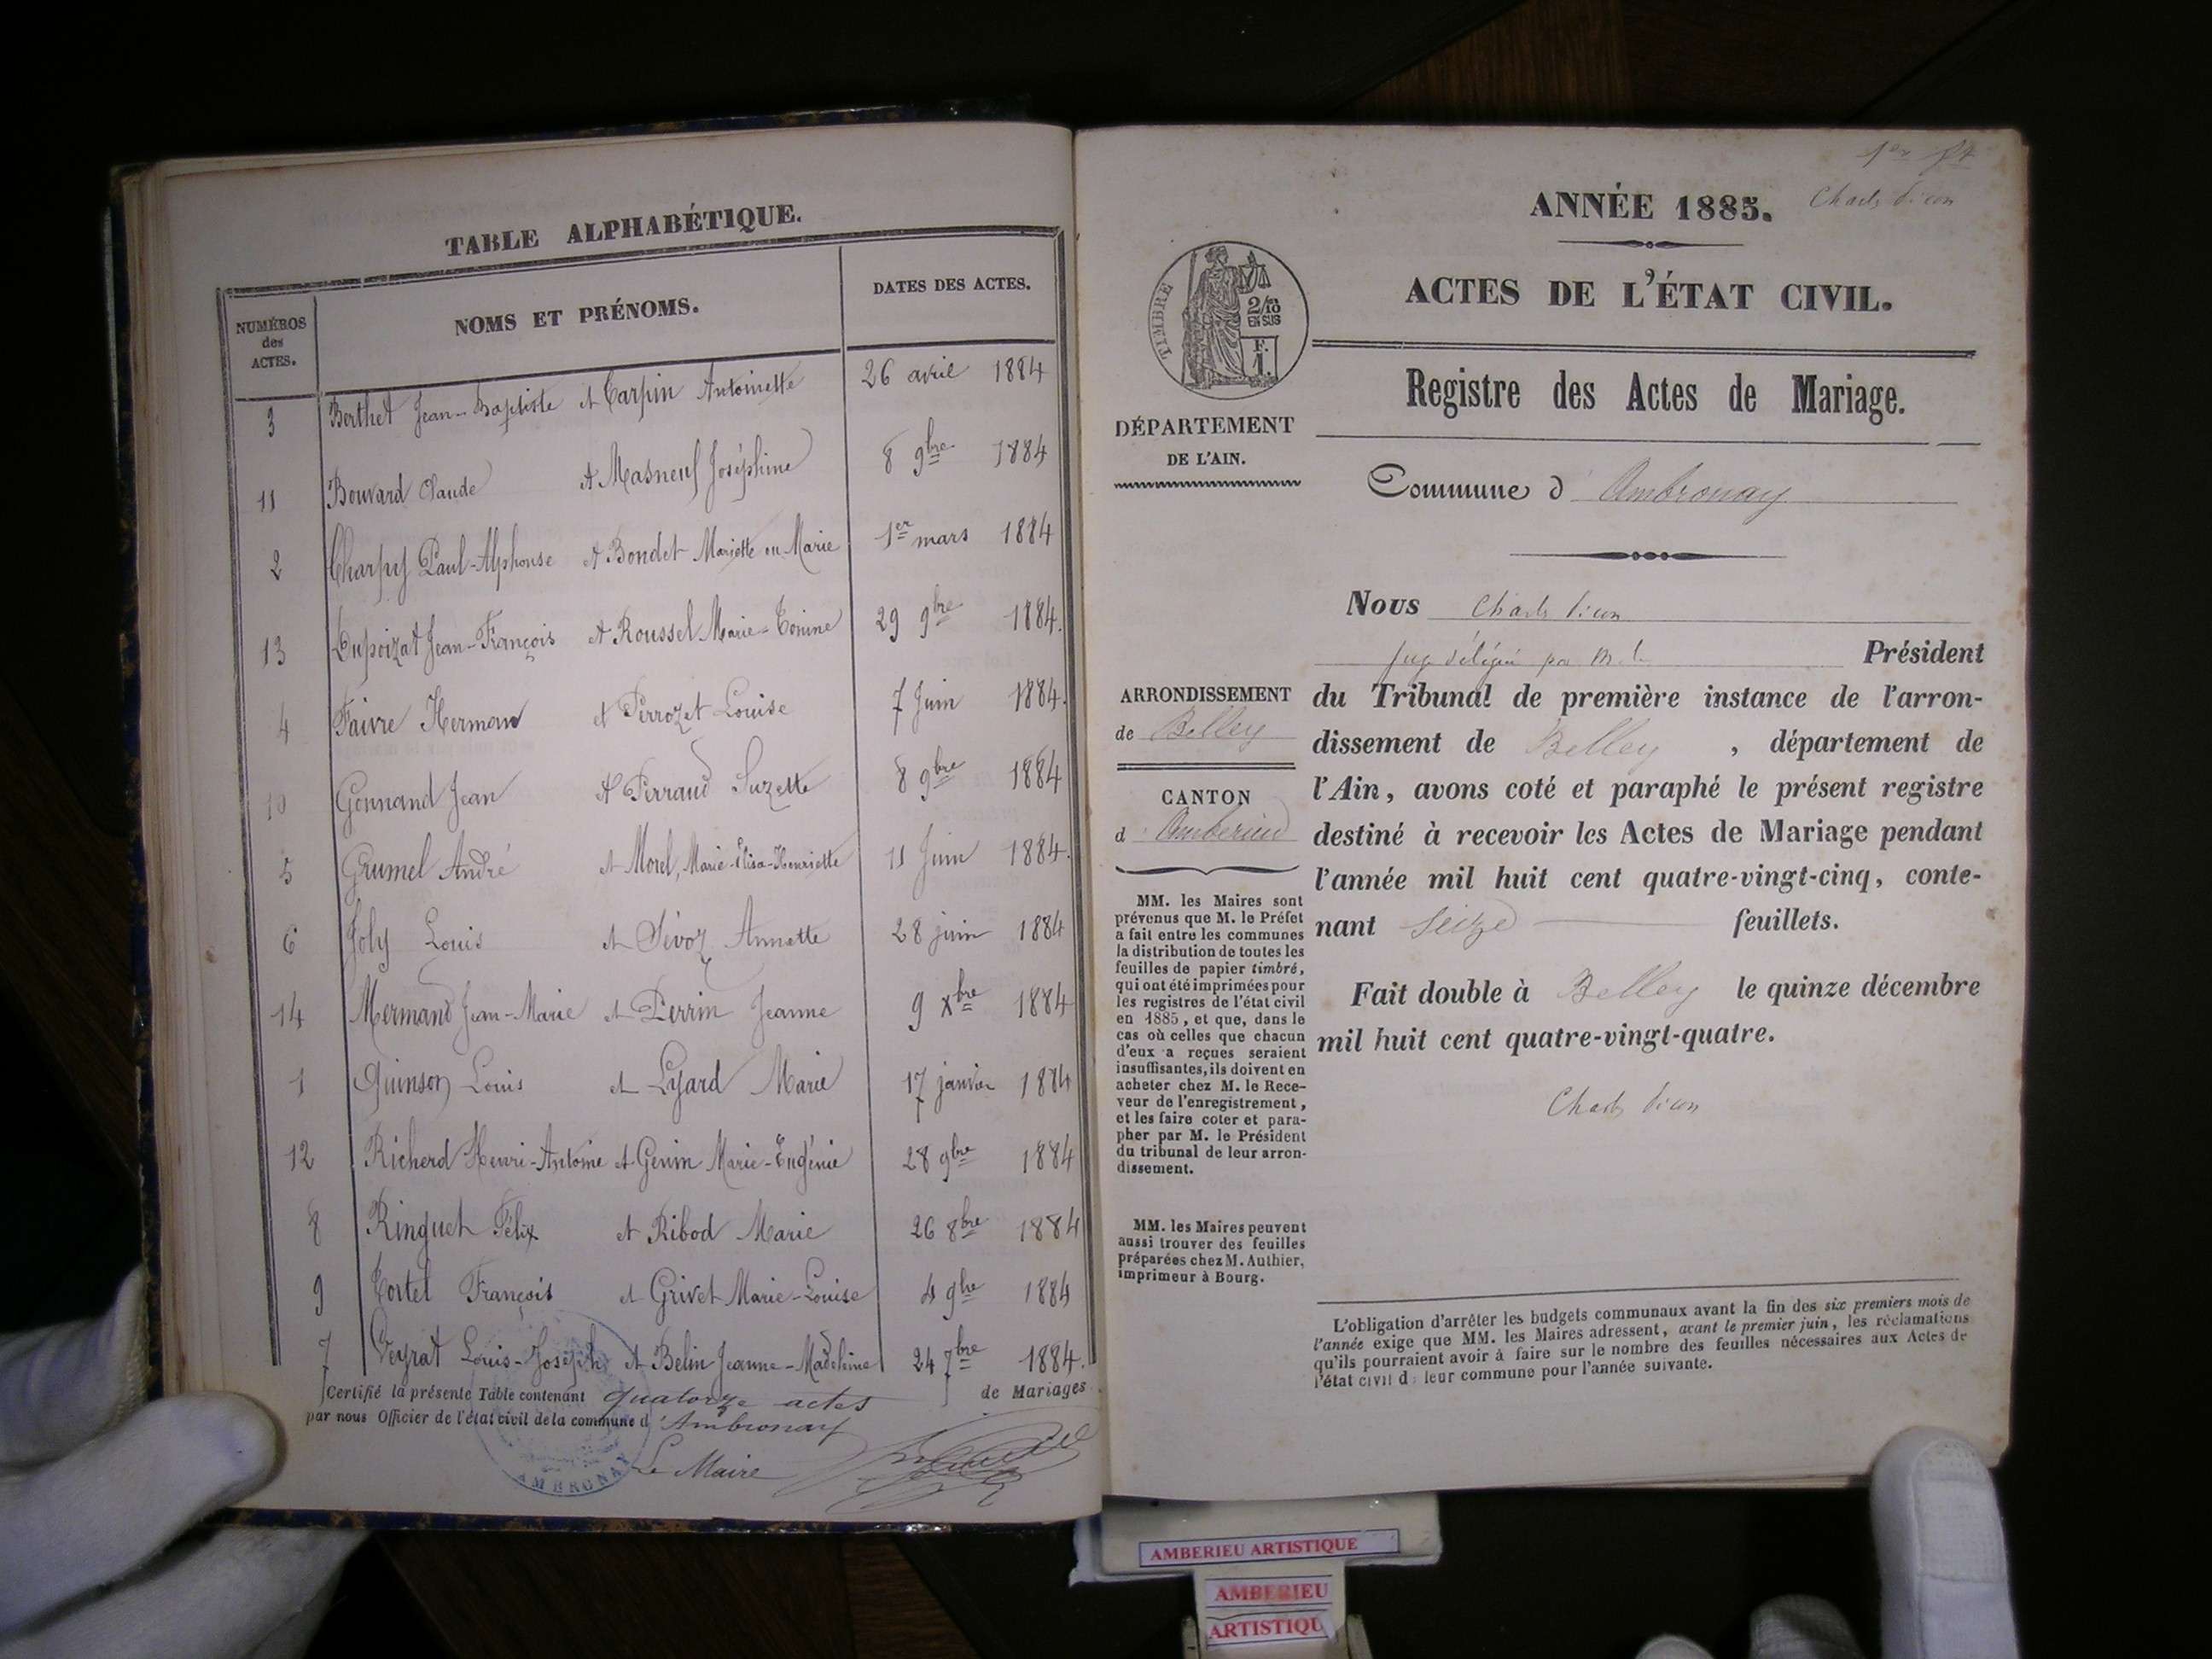 TABLE ALPHABÉTIQUE.
NUMÉROS des ACTES.
NOMS ET PRÉNOMS.
DATES DES ACTES.
3 Berthet Jean-Baptiste et Carpin Antoinette 26 avril 1884
11 Bouvard Claude et Masneuf Joséphine 8 9bre 1884
2 Charpy Paul-Alphonse et Bondet Mariette ou Marie 1er mars 1884
13 Dupoizat Jean-François et Roussel Marie-Tonine 29 9bre 1884.
4 Faivre Herman et Perrozet Louise 7 Juin 1884.
10 Gonnand Jean et Perraud Suzette 8 9bre 1884
5 Grumel André et Morel, Marie-Elisa-Henriette 11 Juin 1884.
6 Joly Louis et Sévoz Annette 28 juin 1884
14 Mermand Jean-Marie et Perrin Jeanne 9 Xbre 1884
1 Quinson Louis et Lyard Marie 17 janvier 1884
12 Richerd Henri-Antoine et Genin Marie-Eugénie 28 9bre 1884
8 Ringuet Félix et Ribod Marie 26 8bre 1884
9 Tortel François et Grivet Marie-Louise 4 9bre 1884
7 Veyrat Louis-Joseph et Belin Jeanne-Madeleine 24 7bre 1884.
Certifié la présente Table contenant quatorze actes de Mariages
par nous Officier de l'état civil de la commune d'Ambronay
Le Maire
AMBRONAY
1er
ANNÉE 1885.
ACTES DE L'ÉTAT CIVIL.
TIMBRE
2/10
EN SUS
F.
1.
Registre des Actes de Mariage.
DÉPARTEMENT
DE L'AIN.
Commune d'Ambronay
Nous Charles
juge délégué par M. le Président
ARRONDISSEMENT
de Belley
CANTON
d'Ambérieu
du Tribunal de première instance de l'arron-
dissement de Belley, département de
l'Ain, avons coté et paraphé le présent registre
destiné à recevoir les Actes de Mariage pendant
l'année mil huit cent quatre-vingt-cinq, conte-
nant seize feuillets.
Fait double à Belley le quinze décembre
mil huit cent quatre-vingt-quatre.
Charles
MM. les Maires sont
prévenus que M. le Préfet
a fait entre les communes
la distribution de toutes les
feuilles de papier timbré,
qui ont été imprimées pour
les registres de l'état civil
en 1885, et que, dans le
cas où celles que chacun
d'eux a reçues seraient
insuffisantes, ils doivent en
acheter chez M. le Rece-
veur de l'enregistrement,
et les faire coter et para-
pher par M. le Président
du tribunal de leur arron-
dissement.
MM. les Maires peuvent
aussi trouver des feuilles
préparées chez M. Authier,
imprimeur à Bourg.
L'obligation d'arrêter les budgets communaux avant la fin des six premiers mois de
l'année exige que MM. les Maires adressent, avant le premier juin, les réclamations
qu'ils pourraient avoir à faire sur le nombre des feuilles nécessaires aux Actes de
l'état civil d: leur commune pour l'année suivante.
AMBERIEU ARTISTIQUE
AMBERIEU
ARTISTIQU